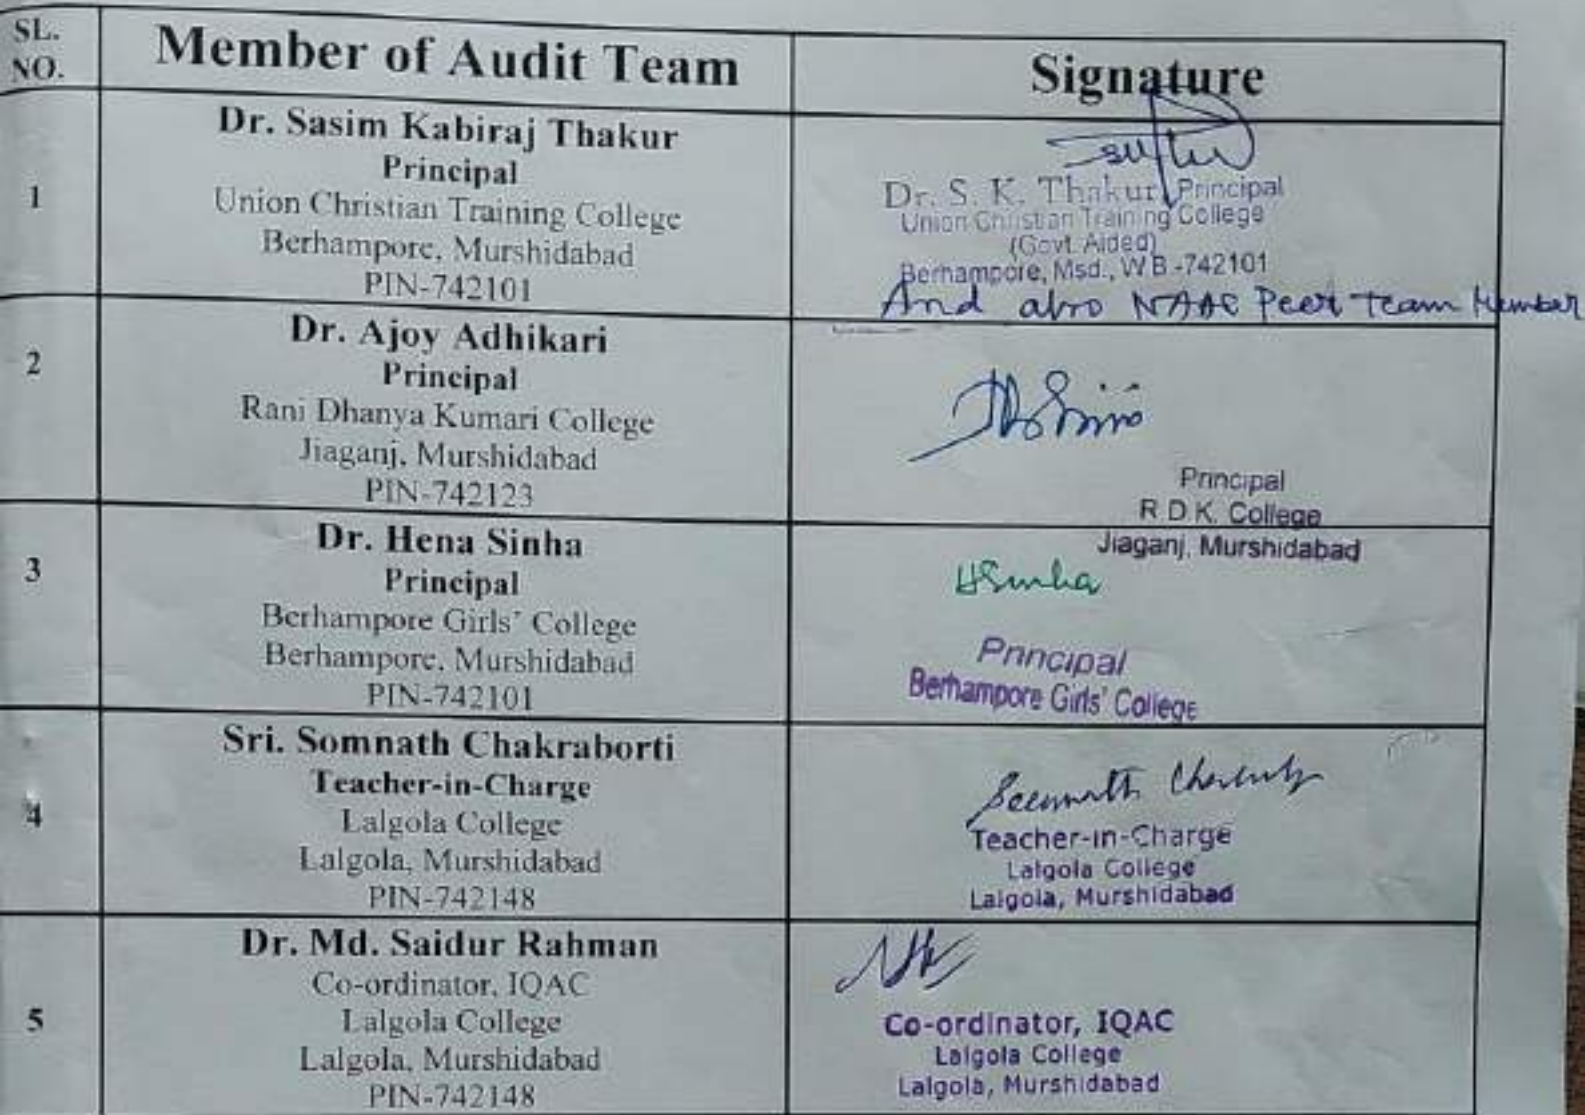 SL. NO.
Member of Audit Team
Signature
1
Dr. Sasim Kabiraj Thakur
Principal
Union Christian Training College
Berhampore, Murshidabad
PIN-742101
Dr. S. K. Thakur, Principal
Union Christian Training College
(Govt. Aided)
Berhampore, Msd., W B -742101
And also NAAC Peer Team Member
2
Dr. Ajoy Adhikari
Principal
Rani Dhanya Kumari College
Jiaganj, Murshidabad
PIN-742123
Principal
R.D.K. College
Jiaganj, Murshidabad
3
Dr. Hena Sinha
Principal
Berhampore Girls' College
Berhampore, Murshidabad
PIN-742101
HSinha
Principal
Berhampore Girls' College
4
Sri. Somnath Chakraborti
Teacher-in-Charge
Lalgola College
Lalgola, Murshidabad
PIN-742148
Teacher-in-Charge
Lalgola College
Lalgola, Murshidabad
5
Dr. Md. Saidur Rahman
Co-ordinator, IQAC
Lalgola College
Lalgola, Murshidabad
PIN-742148
Co-ordinator, IQAC
Lalgola College
Lalgola, Murshidabad